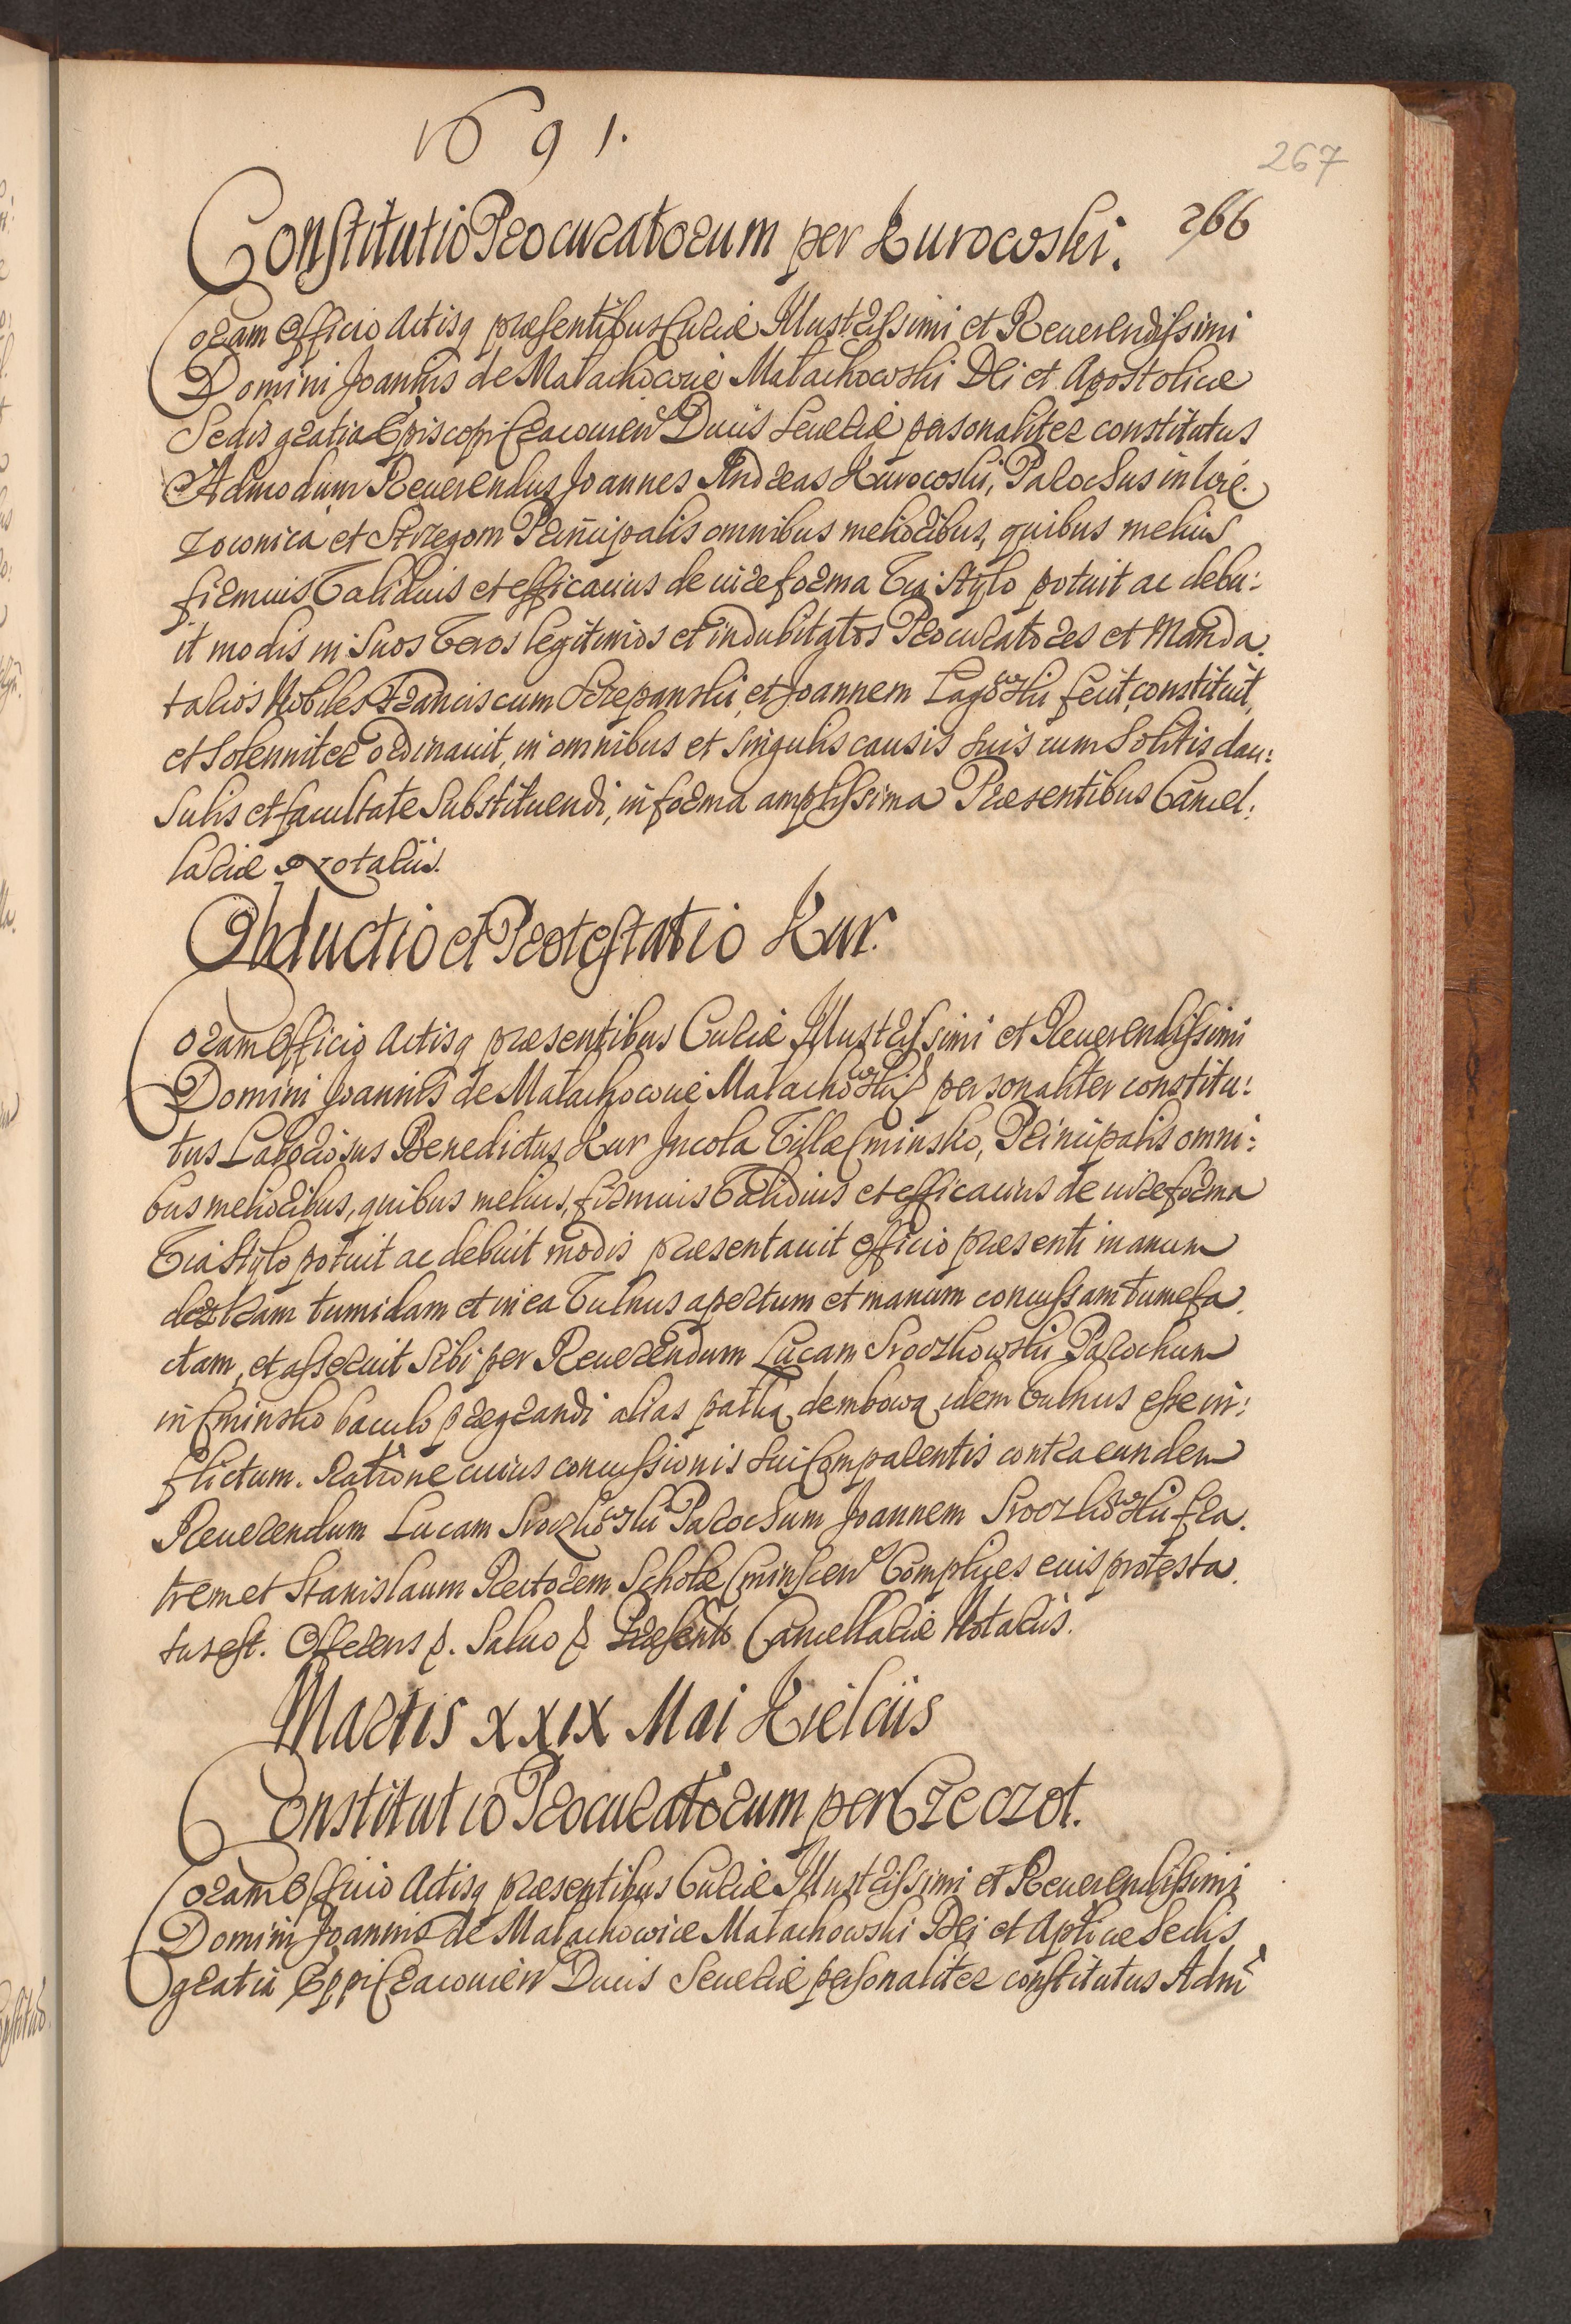 1691.
267
266
Constitutio Procuratorum per Kurowski.
Coram Officio Actisq praesentibus Curiae Illustrissimi et Reuerendissimi
Domini Joannis de Małachowice Małachowski Dei et Apostolicae
Sedis gratia Episcopi Cracouien Ducis Seueriae personaliter constitutus
Admodum Reuerendus Joannes Andreas Kurowski, Parochus in
et Principalis omnibus melioribus, quibus melius
firmius validius et efficacius de iure forma via stylo potuit ac debu:
it modis in suos veros legitimos et indubitatos Procuratores et Manda
tarios Nobiles Franciscum Szczepanski, et Joannem Łagowski fecit, constituit,
et solenniter ordinauit, in omnibus et singulis causis suis cum solitis clau:
sulis et facultate substituendi, in forma amplissima Praesentibus Cancel:
lariae Notariis.
Obductio et Protestatio Kur.
Coram Officio Actisq praesentibus Curiae Illustrissimi et Reuerendissimi
Domini Joannis de Małachowice Małachowski personaliter constitu:
tus Laboriosus Benedictus Kur Incola Villae Cminsko, Principalis omni:
bus melioribus, quibus melius, firmius validius et efficacius de iure forma
via stylo potuit ac debuit modis praesentauit officio praesenti manum
dextram tumidam et in ea vulnus apertum et manum concussam tumefa
ctam, et asseruit sibi per Reuerendum Lucam Sroczkowski Parochum
in Cminsko baculo praegrandi alias pałką dembową idem vulnus esse in:
flictum. Ratione cuius concussionis sui Comparentis contra eundem
Reuerendum Lucam Sroczkowski Parochum Joannem Sroczkowski fra
trem et Stanislaum Rectorem Scholae Cminscen Complices eius protesta
tus est. Offerens p. Saluo p Praesente Cancellariae Notariis.
Martis XXIX Mai Kielciis
Constitutio Procuratorum per Czeczot.
Coram Officio Actisq praesentibus Curiae Illustrissimi et Reuerendissimi
Domini Joannis de Małachowice Małachowski Dei et Aplicae Sedis
gratia Eppi Cracouien Ducis Seueriae personaliter constitutus Adm